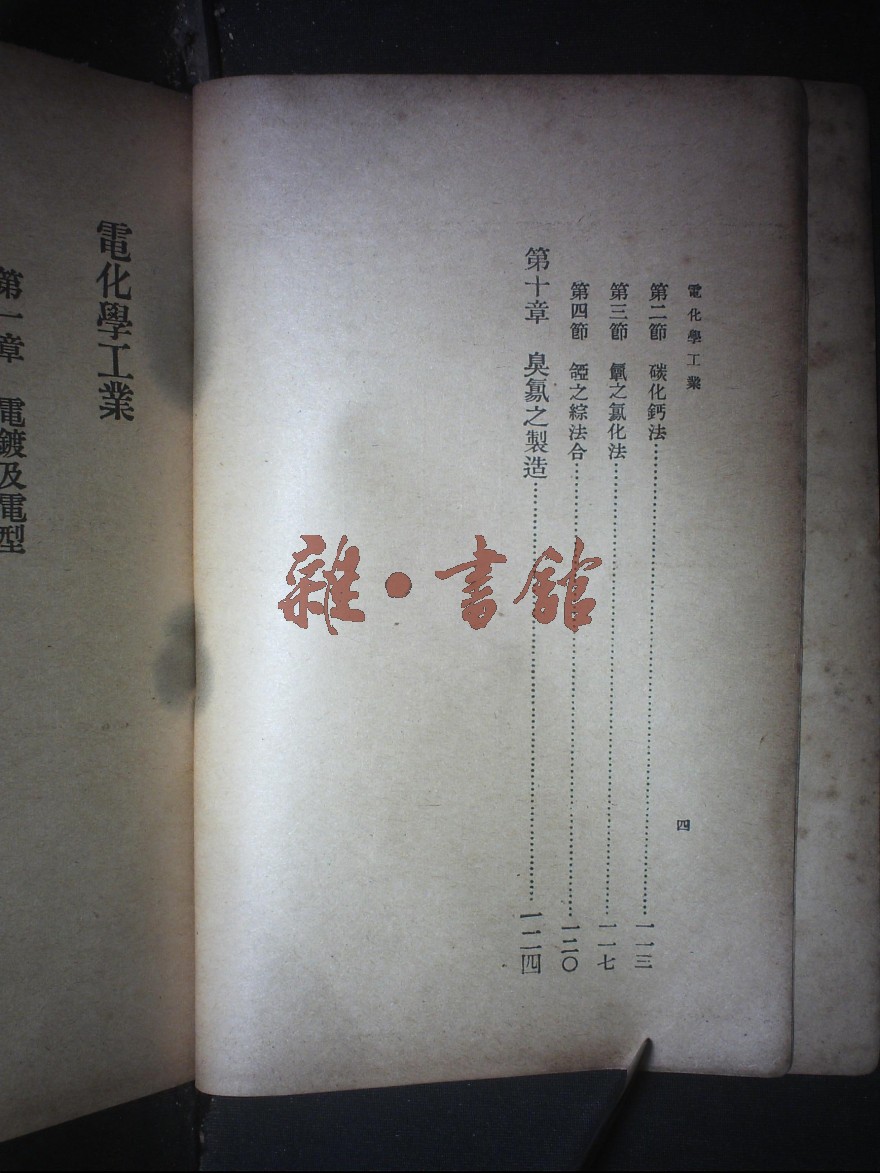 電化學工業
四
第二節　碳化鈣法……一一三
第三節　之氱化法……一一七
第四節　之綜法合……一二〇
第十章　臭氱之製造……一二四
雜·書館
電化學工業
第一章　電鍍及電型